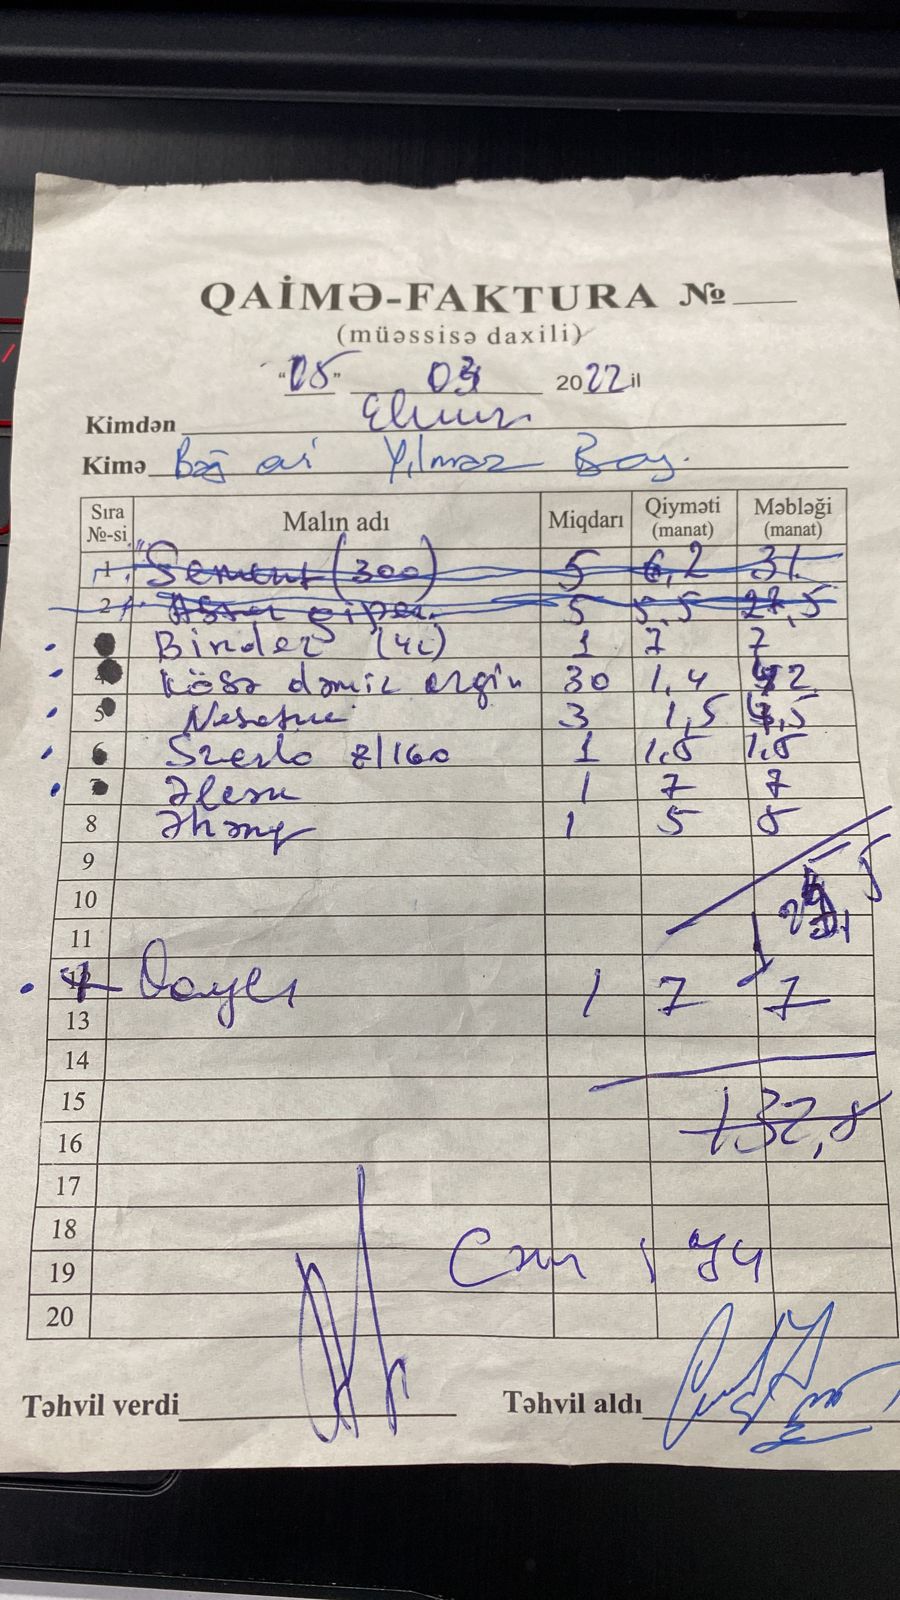 QAİMƏ-FAKTURA №
(müəssisə daxili)
"05" 03 2022 il
Kimdən Elnur
Kimə Bağ evi Yılmaz Bəy.
Sıra №-si Malın adı Miqdarı Qiyməti (manat) Məbləği (manat)
1 Sement (300) 5 6,2 31
2 5 5,5 27,5
Binder (4L) 1 7 7
4 Kösə dəmir 30 1,4 42
5 3 1,5 4,5
6 Sverlo 8/160 1 1,5 1,5
7 1 7 7
8 Əhəng 1 5 5
9
10
11
12 1 7 7
13
14
15
132,5
16
17
18
Cəm : 74
19
20
Təhvil verdi Təhvil aldı